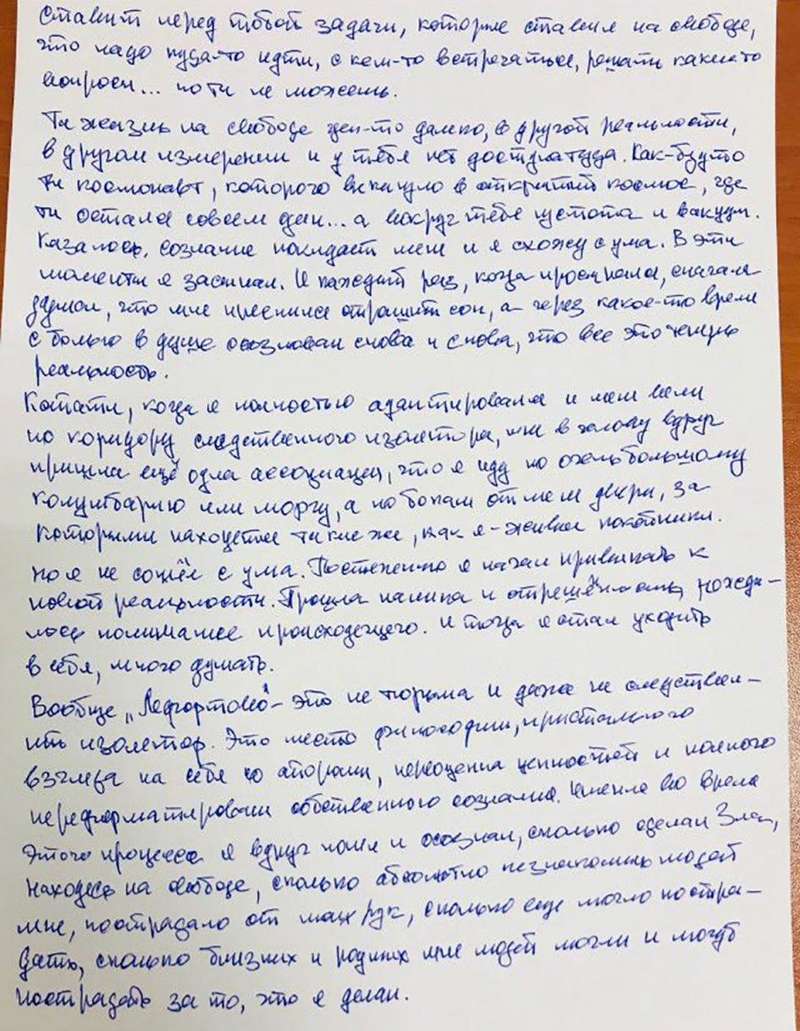 ставит перед тобой задачи, которые ставил на свободе,
что надо куда-то идти, с кем-то встречаться, решать какие-то
вопросы... но ты не можешь.
Та жизнь на свободе где-то далеко, в другой реальности,
в другом измерении и у тебя нет доступа туда. Как-будто
ты космонавт, которого выкинуло в открытый космос, где
ты остался совсем один... а вокруг тебя пустота и вакуум.
Казалось, сознание покидает меня и я схожу с ума. В эти
моменты я засыпал. И каждый раз, когда просыпался, сначала
думал, что мне приснился страшный сон, а через какое-то время
с болью в душе осознавал снова и снова, что все это теперь
реальность.
Кстати, когда я полностью адаптировался и меня вели
по коридору следственного изолятора, мне в голову вдруг
пришла ещё одна ассоциация, что я иду по очень большому
колумбарию или моргу, а по бокам от меня двери, за
которыми находятся такие же, как я - живые покойники.
Но я не сошёл с ума. Постепенно я начал привыкать к
новой реальности. Прошла паника и отрешённость, рождалось
понимание происходящего. И тогда я стал уходить
в себя, много думать.
Вообще „Лефортово" - это не тюрьма и даже не следствен-
ный изолятор. Это место философии, пристального
взгляда на себя со стороны, переоценки ценностей и полного
переформатирования собственного сознания. Именно во время
этого процесса я вдруг понял и осознал, сколько сделал Зла,
находясь на свободе, сколько абсолютно незнакомых людей
мне, пострадало от моих рук, сколько еще могло постра-
дать, сколько близких и родных мне людей могли и могут
пострадать за то, что я делал.